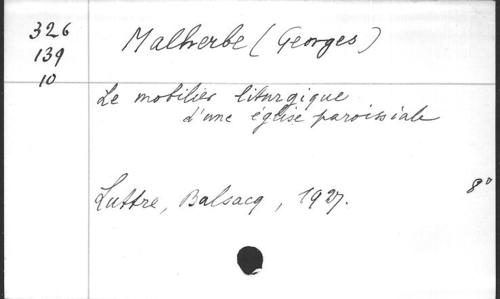 326
139
10
Malherbe (Georges)
Le mobilier liturgique
d'une église paroissiale
Luttre, Balsacq, 1927.
8°